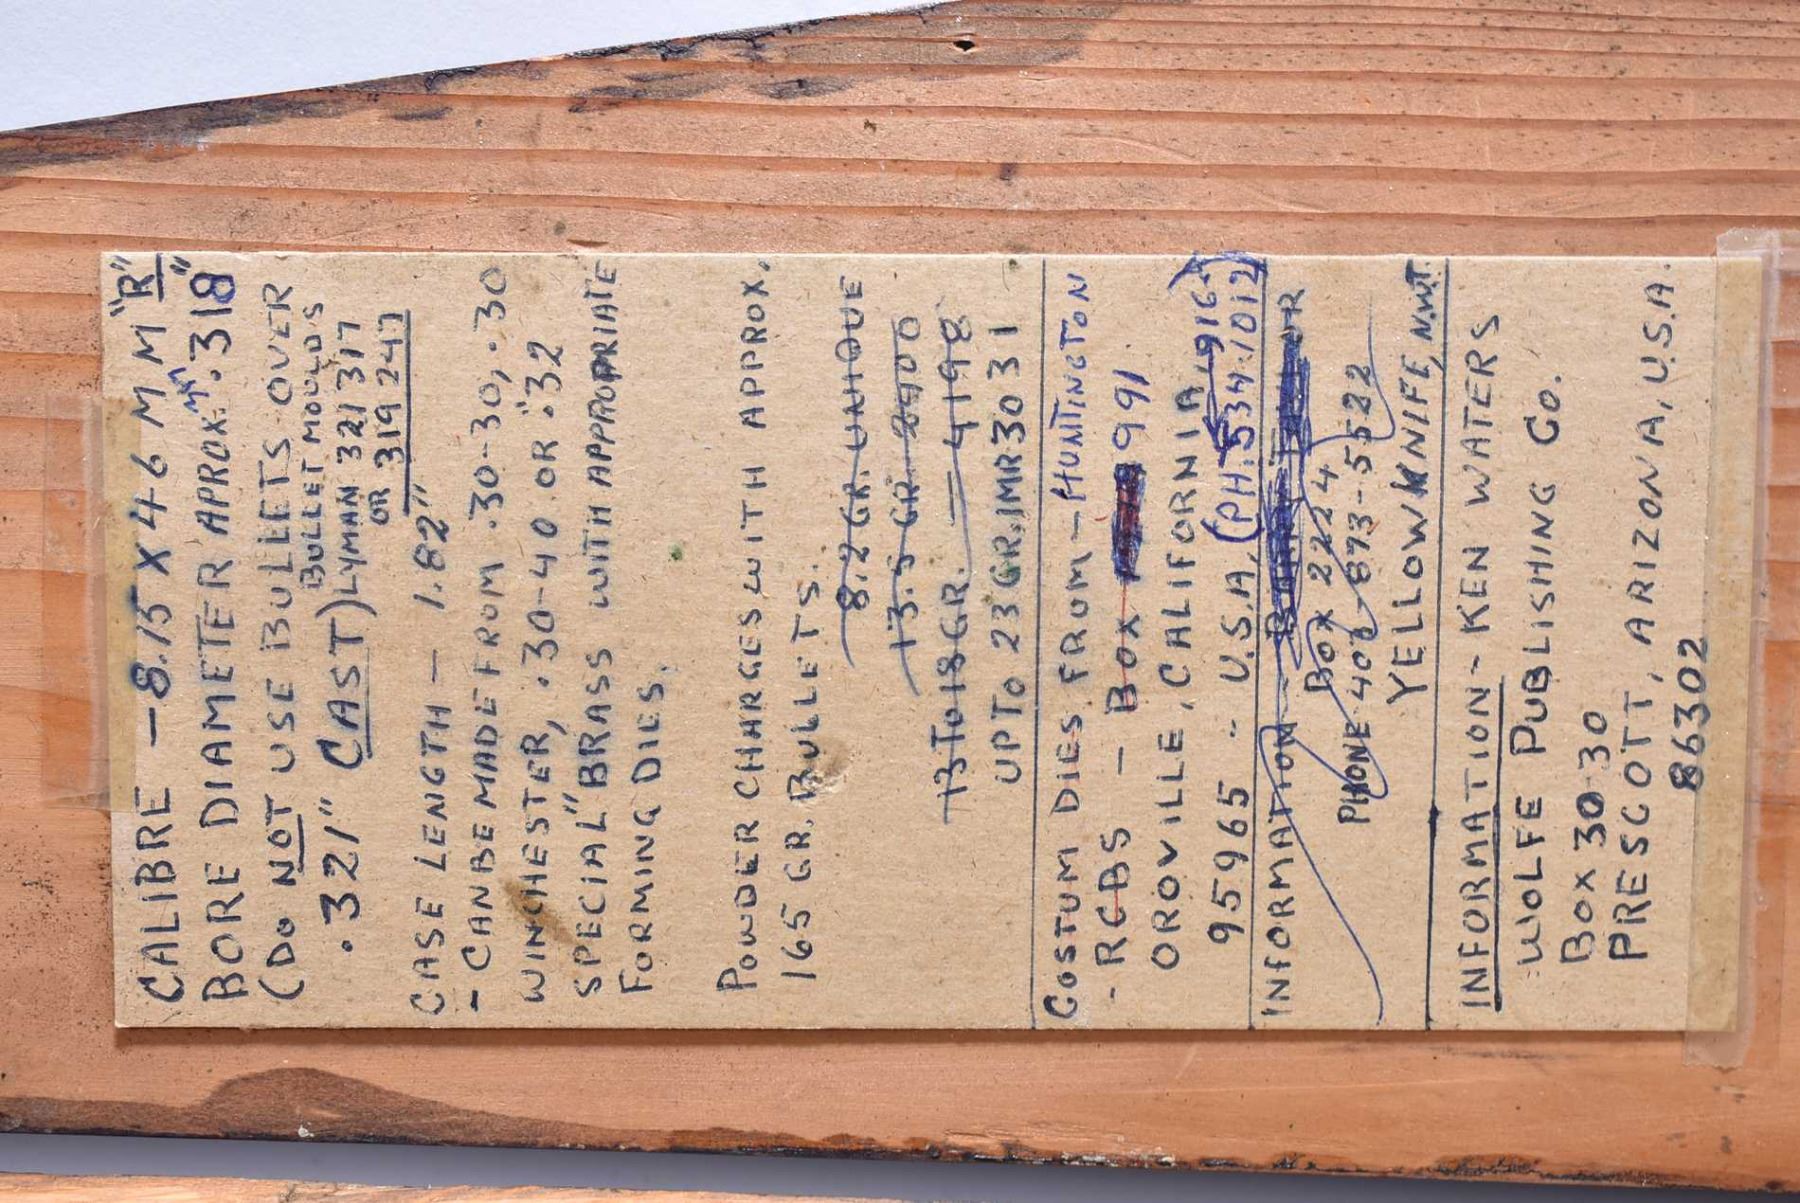 CALIBRE - 8.15 X 46 MM "R"
BORE DIAMETER APROX. .318"
(DO NOT USE BULLETS OVER
.321" CAST)
BULLET MOULDS
LYMAN 321317
OR 319247
CASE LENGTH - 1.82"
- CAN BE MADE FROM .30-30, .30
WINCHESTER, .30-40 OR .32
SPECIAL" BRASS WITH APPROPRIATE
FORMING DIES.
POWDER CHARGES WITH APPROX.
165 GR. BULLETS.
8.2 GR. UNIQUE
13.5 GR. 2400
13 TO 18 GR. — 4198
UP TO 23 GR. IMR 3031
COSTUM DIES FROM - HUNTINGTON
- RCBS - BOX 991
OROVILLE, CALIFORNIA,
95965 - U.S.A. (PH. 534-1012
916)
INFORMATION -
BOX 2224
PHONE 403-873-5522
YELLOWKNIFE, N.W.T.
INFORMATION - KEN WATERS
WOLFE PUBLISHING CO.
BOX 3030
PRESCOTT, ARIZONA, U.S.A.
86302